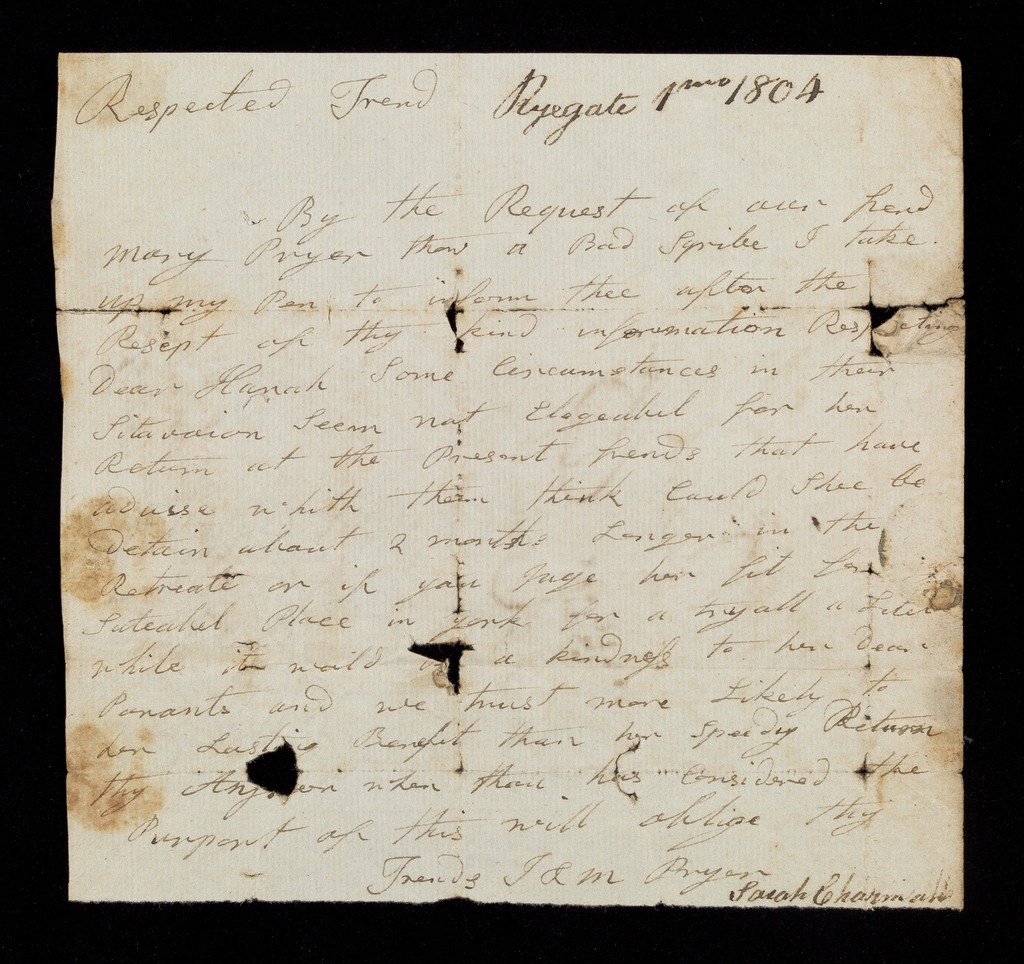 Respected Frend Ryegate 1mo 1804
By the Request of our frend
Mary Pryer thow a Bad Scribe I take
up my Pen to inform thee after the
Resept of thy kind information Respecting
Dear Hanah Some Circumstances in their
Seem not Elegeabel for her
Return at the Present frends that have
advisse whith them think Could Shee be
Detain about 2 months Longer in the
Retreate or if you juge her fit for
Suteabel Place in york for a tryall a Liter
while it wold a kindness to her Dear
Parants and we trust more Likely to
her Lasting Benefit than her Speedy Return
thy when thou has Considered the
Purport of this will oblige thy
Frends J & M Pryer
Sarah